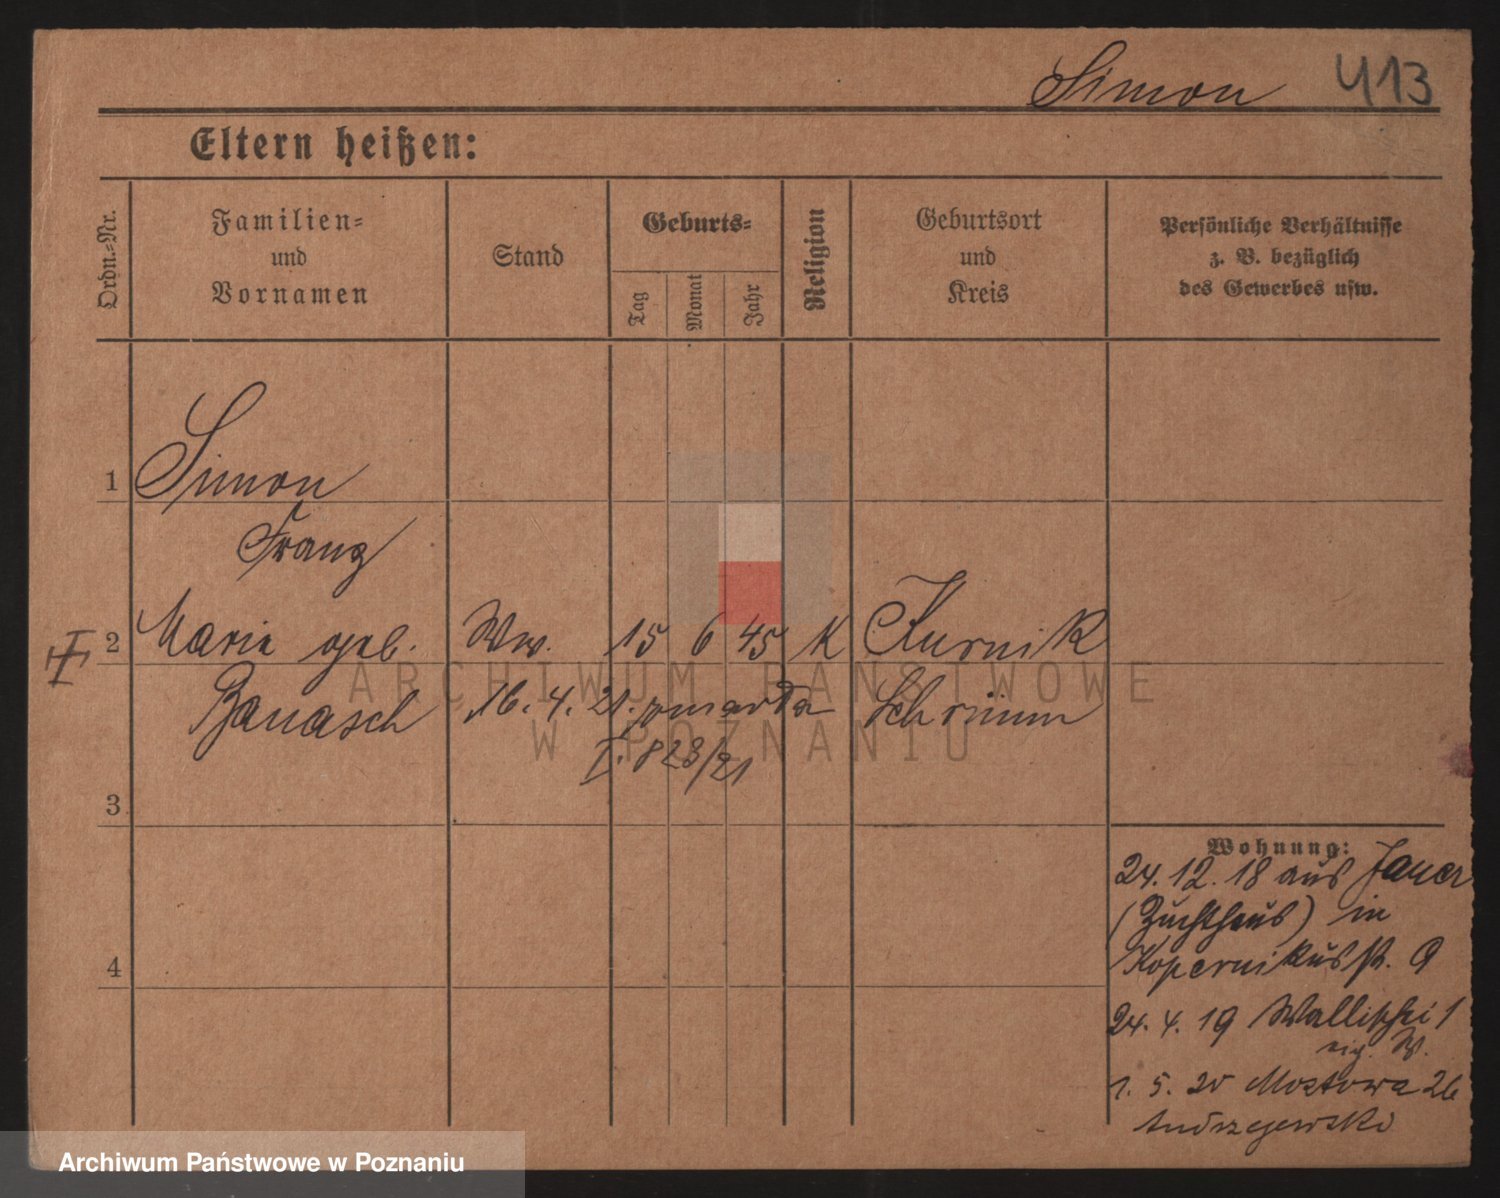 Simon 413
Eltern heißen:
Ordn.=Nr.
Familien=
und
Vornamen
Stand
Geburts=
Tag
Monat
Jahr
Religion
Geburtsort
und
Kreis
Persönliche Verhältnisse
z. B. bezüglich
des Gewerbes usw.
1 Simon
Franz
2 Marie geb. Ww. 15 6 45 K Kurnik
Banasch 16. 4. 21. zmarła Schrimm
I. 828/21
3
4
Wohnung:
24. 12. 18 aus Jauer
(Zuchthaus) in
Kopernikusstr. 9
24. 4. 19 Wallischei 1
eig. W.
1. 5. 20 Mostowa 26
Andrzejewski
ARCHIWUM PAŃSTWOWE
W POZNANIU
Archiwum Państwowe w Poznaniu